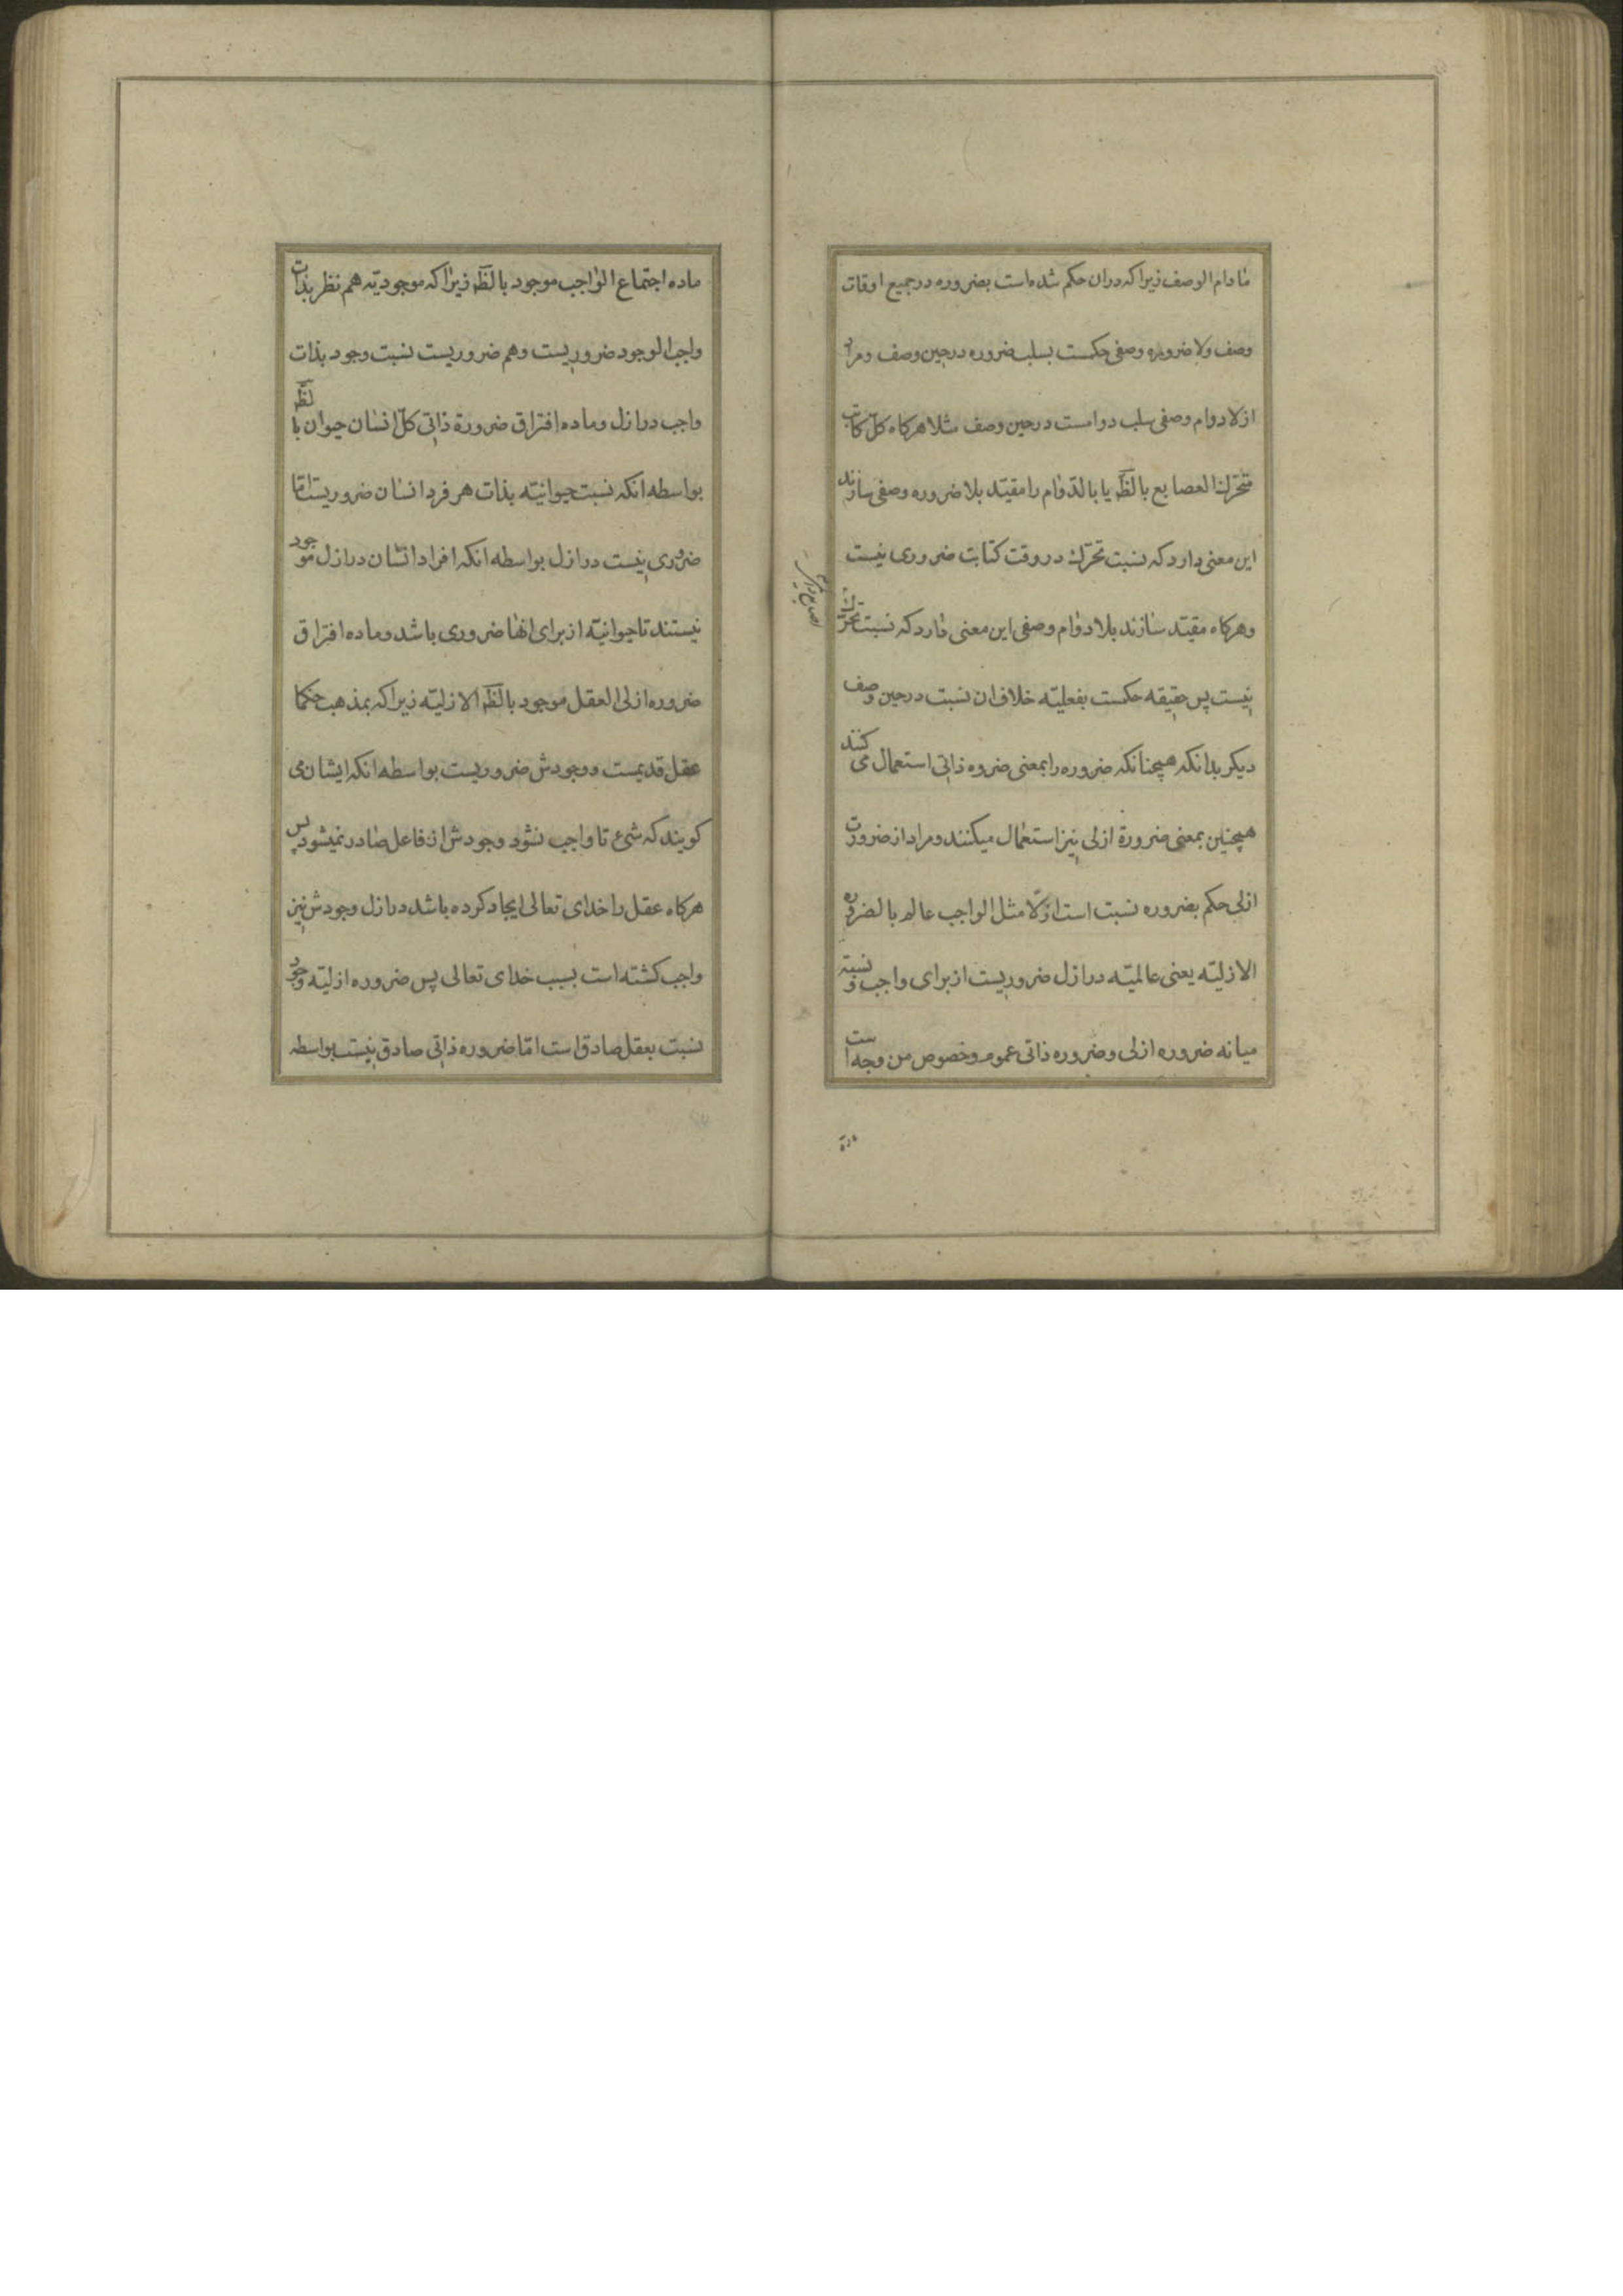 مادام الوصف زیرا که دران حکم شده است بضروره در جمیع اوقات
وصف ولا ضروره وصفی حکمست بسلب ضروره در حین وصف و مراد
از لا دوام وصفی سلب دوامست در حین وصف مثلا هرکاه کل کاتب
متحرك العصابع بالضَّه یا بالدّوام را مقیّد بلا ضروره وصفی سازند
این معنی دارد که نسبت تحرّك در وقت کتابت ضروری نیست
وهرکاه مقیّد سازند بلا دوام وصفی این معنی دارد که نسبت تحرّك
نیست پس حقیقه حکمست بفعلیّه خلاف ان نسبت در حین وصف
دیکر بدانکه همچنانکه ضروره را بمعنی ضروه ذاتی استعمال می کنند
همچنین بمعنی ضرورة ازلی نیز استعمال میکنند و مراد از ضرورت
ازلی حکم بضروره نسبت است ازلا مثل الواجب عالم بالضروره
الازلیّه یعنی عالمیّه در ازل ضروریست از برای واجب و نسبته
میانه ضروره ازلی و ضروره ذاتی عموم وخصوص من وجه است
ماده
ماده اجتماع الواجب موجود بالضَّه زیرا که موجودیّه هم نظر بذات
واجب الوجود ضروریست وهم ضروریست نسبت وجود بذات
واجب در ازل وماده افتراق ضرورة ذاتی کلّ انسان حیوان بالضَّه
بواسطه انکه نسبت حیوانیّه بذات هر فرد انسان ضروریست امّا
ضروری نیست در ازل بواسطه انکه افراد انسان در ازل موجود
نیستند تا حیوانیّه از برای انها ضروری باشد وماده افتراق
ضروره ازلی العقل موجود بالضَّه الازلیّه زیرا که بمذهب حکما
عقل قدیمست ووجودش ضروریست بواسطه انکه ایشان می
کویند که شیء تا واجب نشود وجودش از فاعل صادر نمیشود پس
هرکاه عقل را خدای تعالی ایجاد کرده باشد در ازل وجودش نیز
واجب کشته است بسبب خدای تعالی پس ضروره ازلیّه وجود
نسبت بعقل صادق است امّا ضروره ذاتی صادق نیست بواسطه